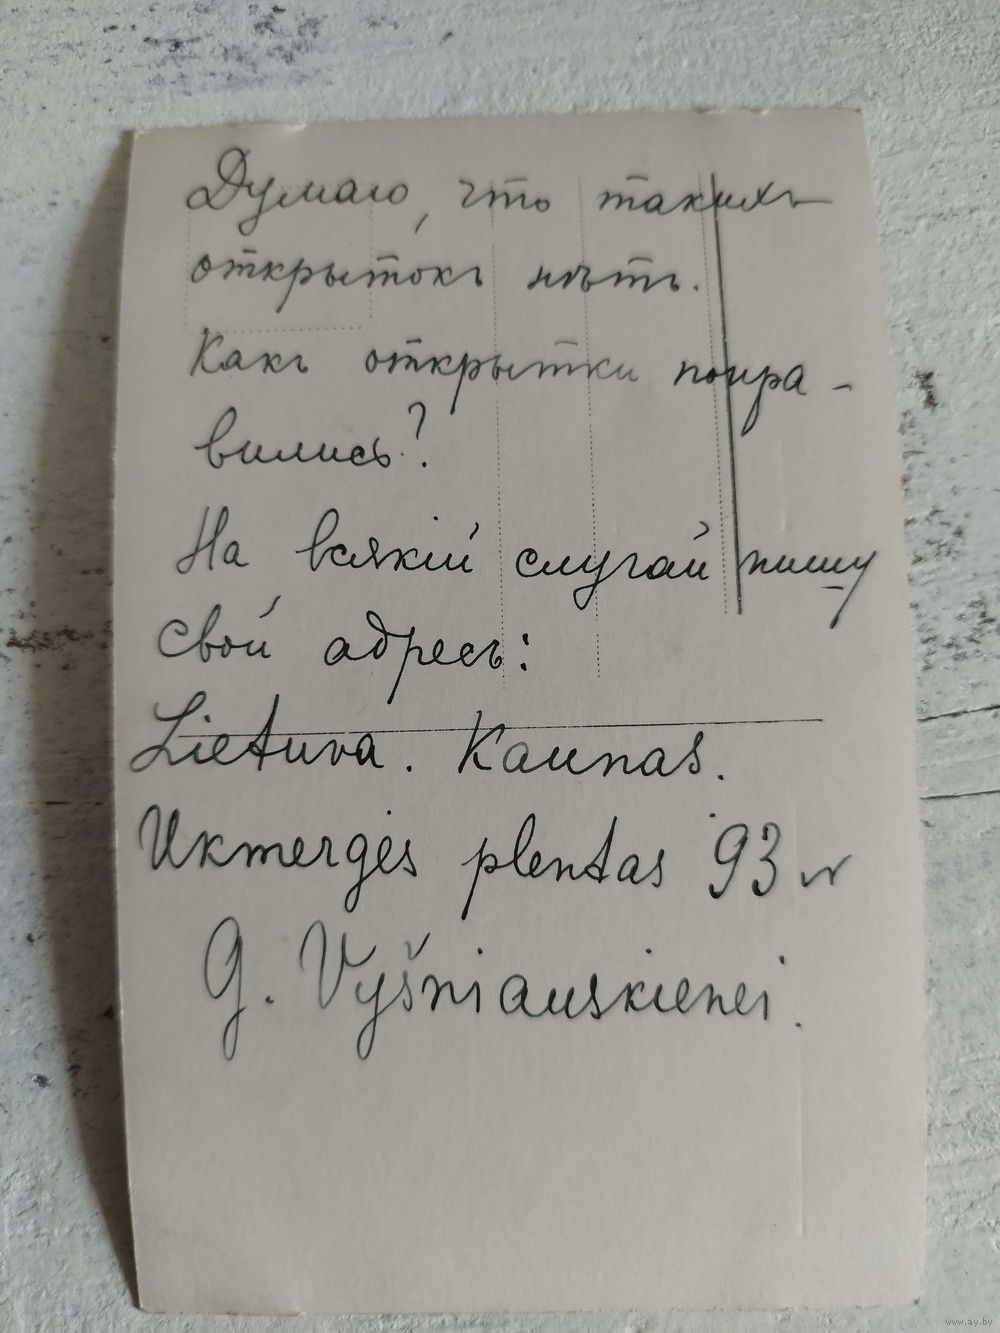 Думаю, что такихъ
открытокъ нѣтъ.
Какъ открытки понра-
вились?
На всякій случай пишу
свой адресъ:
Lietuva. Kaunas.
Ukmergės plentas 93 №
G. Vyšniauskienei.
www.ay.by